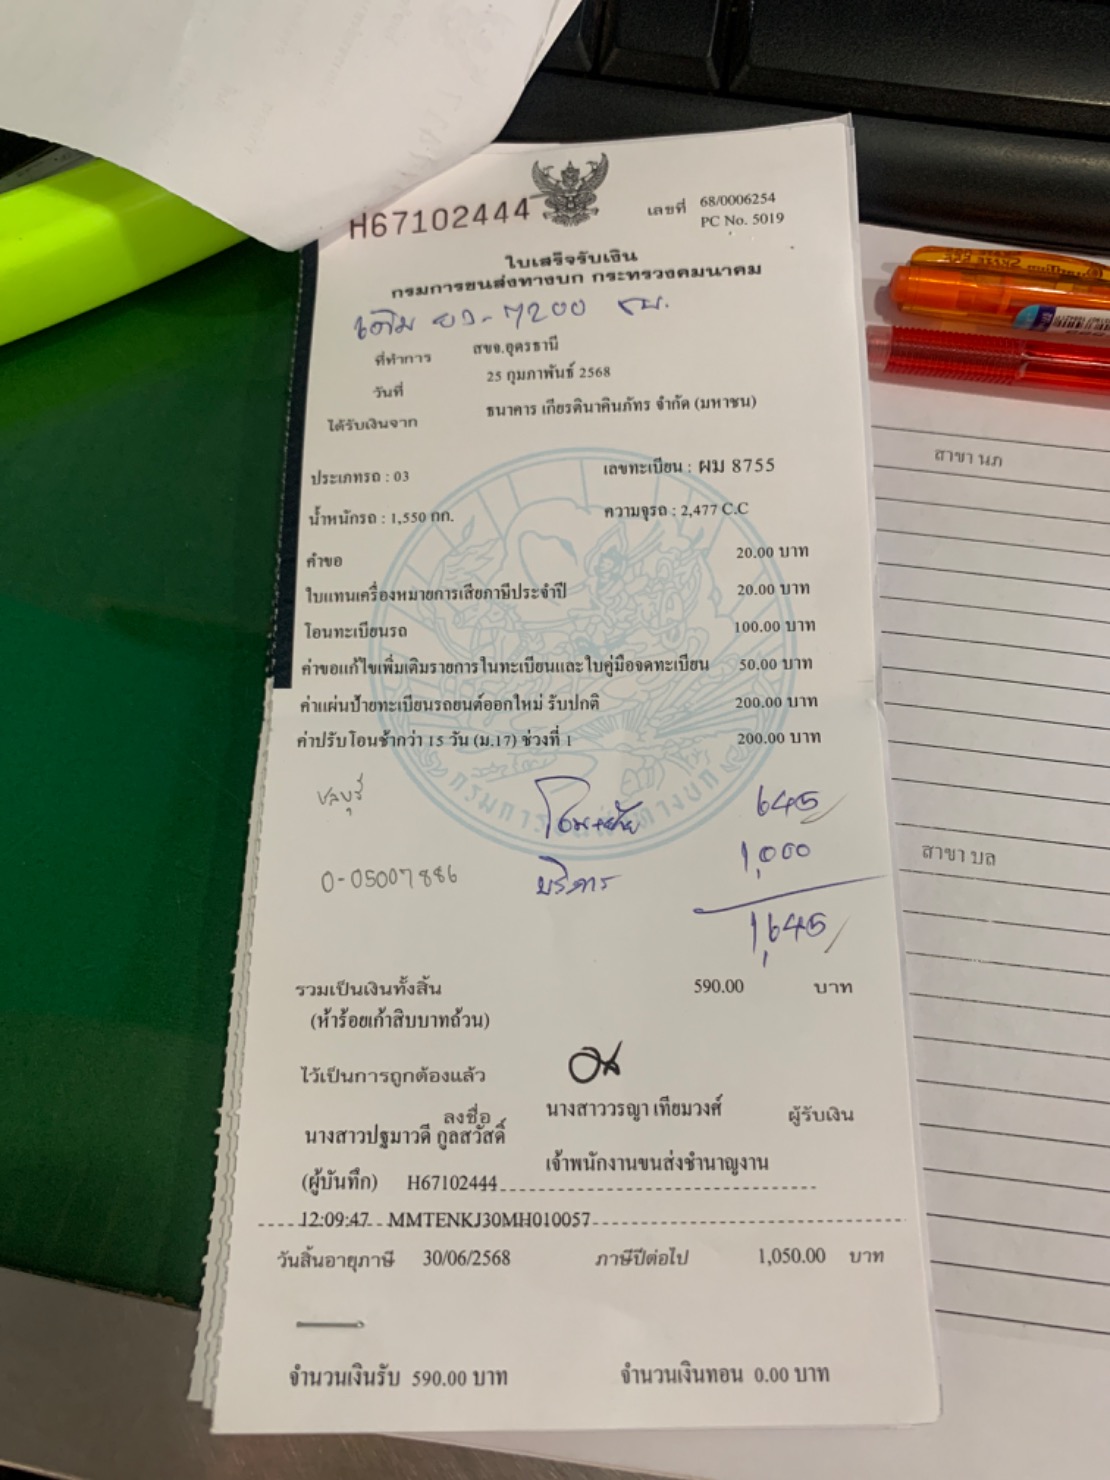 H67102444
เลขที่ 68/0006254
PC No. 5019
ใบเสร็จรับเงิน
กรมการขนส่งทางบก กระทรวงคมนาคม
เดิม ขว-7200 ชบ.
ที่ทำการ สขจ.อุดรธานี
วันที่ 25 กุมภาพันธ์ 2568
ได้รับเงินจาก ธนาคาร เกียรตินาคินภัทร จำกัด (มหาชน)
ประเภทรถ : 03 เลขทะเบียน : ผม 8755
น้ำหนักรถ : 1,550 กก. ความจุรถ : 2,477 C.C
คำขอ 20.00 บาท
ใบแทนเครื่องหมายการเสียภาษีประจำปี 20.00 บาท
โอนทะเบียนรถ 100.00 บาท
ค่าขอแก้ไขเพิ่มเติมรายการในทะเบียนและใบคู่มือจดทะเบียน 50.00 บาท
ค่าแผ่นป้ายทะเบียนรถยนต์ออกใหม่ รับปกติ 200.00 บาท
ค่าปรับโอนช้ากว่า 15 วัน (ม.17) ช่วงที่ 1 200.00 บาท
ชลบุรี 645
0-05007886 บริการ 1,000
1,645
กรมการขนส่งทางบก
รวมเป็นเงินทั้งสิ้น 590.00 บาท
(ห้าร้อยเก้าสิบบาทถ้วน)
ไว้เป็นการถูกต้องแล้ว
ลงชื่อ นางสาววรญา เทียมวงศ์ ผู้รับเงิน
นางสาวปฐมาวดี กูลสวัสดิ์
เจ้าพนักงานขนส่งชำนาญงาน
(ผู้บันทึก) H67102444
12:09:47 MMTENKJ30MH010057
วันสิ้นอายุภาษี 30/06/2568 ภาษีปีต่อไป 1,050.00 บาท
จำนวนเงินรับ 590.00 บาท จำนวนเงินทอน 0.00 บาท
สาขา นภ
สาขา บล